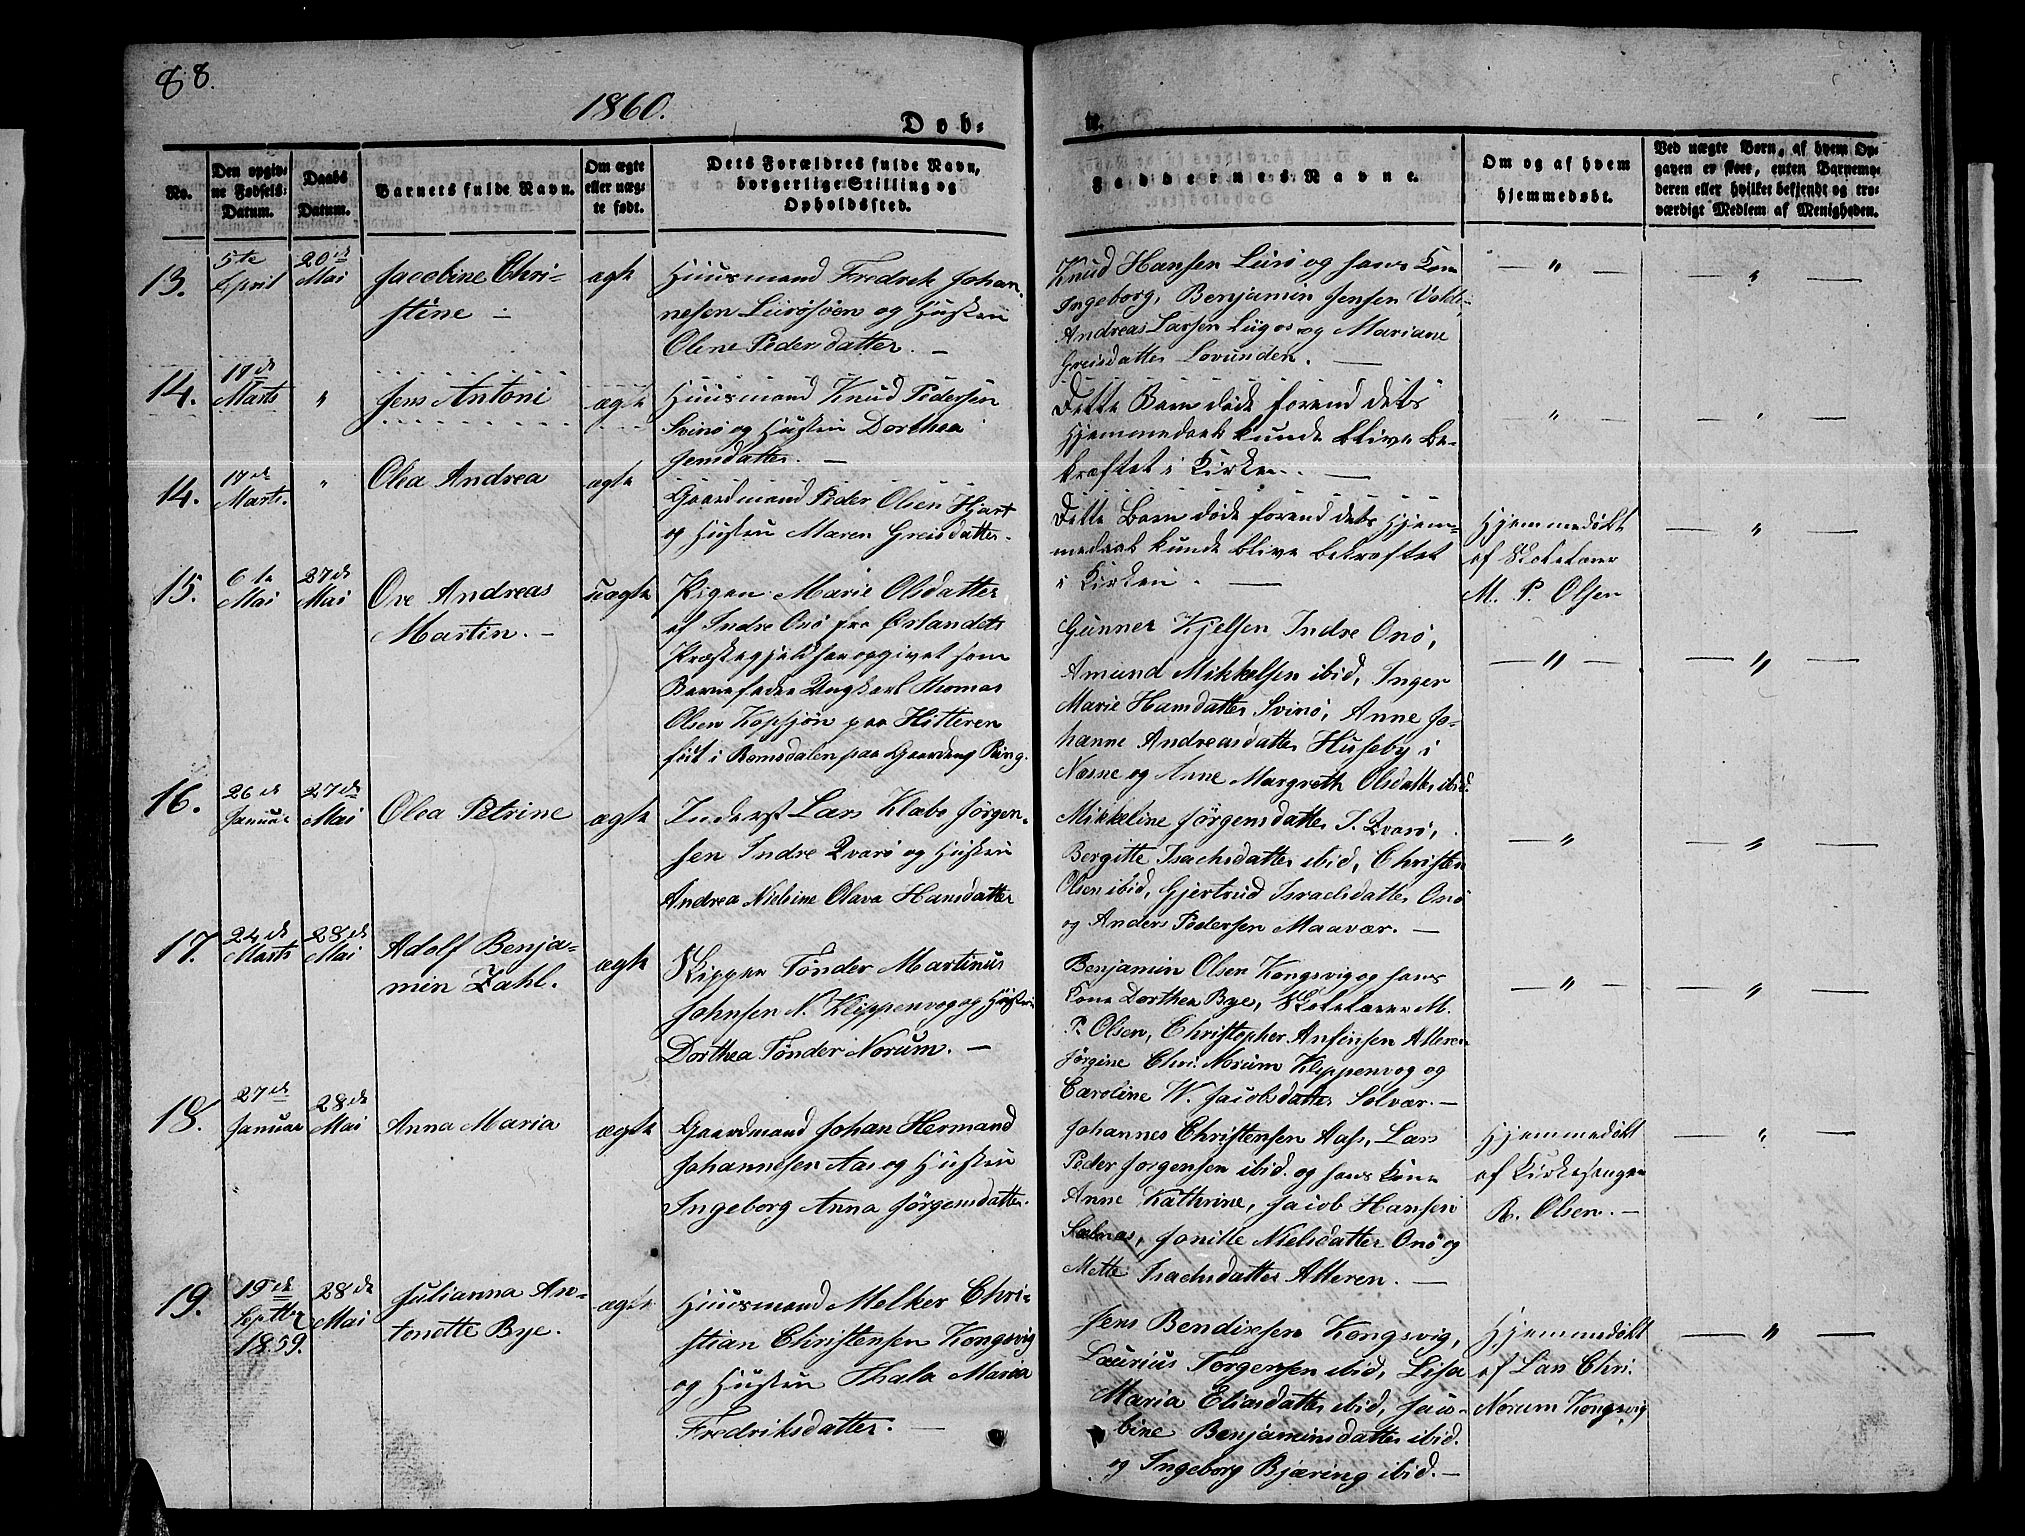 88.
1860.
Dob-
te.
No.
Den opgiv-
ne Fødsels-
Datum.
Daabs
Datum.
Barnets fulde Navn.
Om ægte
eller uæg-
te født.
Dets Forældres fulde Navn,
borgerlige Stilling og
Opholdssted.
Faddernes Navne.
Om og af hvem
hjemmedøbt.
Ved uægte Børn, af hvem Op-
gaven er skeet, enten Barnemo-
deren eller hvilket bekjendt og tro-
værdigt Medlem af Menigheden.
13.
5te
April
20de
Mai
Jacobine Chri-
stine
ægte
Huusmand Fredrik Johan-
nesen Lurøsøen og Hustru
Oline Pedersdatter.
Knud Hansen Lurø og hans Kone
Ingeborg, Benjamin Jensen
Andreas Larsen og Mariane
Greisdatter Lovunden.
14.
19de
Marts
"
Jens Antoni
ægte
Huusmand Knud Pedersen
Svinø og Hustru Dorthea
Jensdatter.
Dette Barn døde forend dets
Hjemmedaab kunde blive be-
kræftet i Kirken.
14.
17de
Marts.
"
Olea Andrea
ægte
Gaardmand Peder Olsen Hjart
og Hustru Maren Greisdatter.
Dette Barn døde forend dets Hjem-
medaab kunde blive bekræftet
i Kirken.
Hjemmedøbt
af Skolelærer
M. P. Olsen
15.
6te
Mai
27de
Mai
Ove Andreas
Martin.
uægte
Pigen Marie Olsdatter
af Indre Onø fra Ørlandets
Præstegjeld har opgivet som
Barnefader Ungkarl Thomas
Olsen Kopsjøn paa Hitteren
født i Romsdalen paa Gaarden Ring.
Gunner Kjelsen Indre Onø,
Amund Mikkelsen ibid, Inger
Marie Hansdatter Svinø, Anne Jo-
hanne Andreasdatter Huseby i
Næsne og Anne Margreth Olsdatter ibid.
16.
26de
Januar
27de
Mai
Olea Petrine
ægte
Inderst Lars Klæbo Jørgen-
sen Indre Qvarø og Hustru
Andrea Nielsine Olava Hansdatter
Mikkeline Jørgensdatter I. Qvarø,
Bergitte Isachsdatter ibid, Christen
Olsen ibid, Gjertrud Israelsdatter Onø
og Anders Pedersen Maavær.
17.
24de
Marts
28de
Mai
Adolf Benja-
min Zahl.
ægte
Skipper Tønder Martinus
Johnsen N. Klippenvog og Hustru
Dorthea Tønder Norum.
Benjamin Olsen Kongsvig og hans
Kone Dorthea Bye, Skolelærer M.
P. Olsen, Christopher Anfinsen Alteren
Jørgine Chri. Norum Klippenvog og
Caroline W. Jacobsdatter Solvær.
18.
27de
Januar
28de
Mai
Anna Maria
ægte
Gaardmand Johan Hermand
Johannesen Aas og Hustru
Ingeborg Anna Jörgensdatter.
Johannes Christensen Aas, Lars
Peder Jorgensen ibid. og hans Kone
Anne Kathrine, Jacob Hansen
Selnæs, Jonille Nielsdatter Onø og
Mette Isachsdatter Alteren.
Hjemmedøbt
af Kirkesanger
R. Olsen.
19.
19de
Septbr
1859.
28de
Mai
Julianna An-
tonette Bye.
ægte
Huusmand Melker Chri-
stian Christensen Kongsvig
og Hustru Thala Maria
Fredriksdatter.
Jens Bendixsen Kongsvig,
Laurius Torgersen ibid, Lisa
Maria Eliasdatter ibid, Jaco-
bine Benjaminsdatter ibid.
og Ingeborg Bjæring ibid.
Hjemmedøbt
af Lars Chri.
Norum Kongsvig